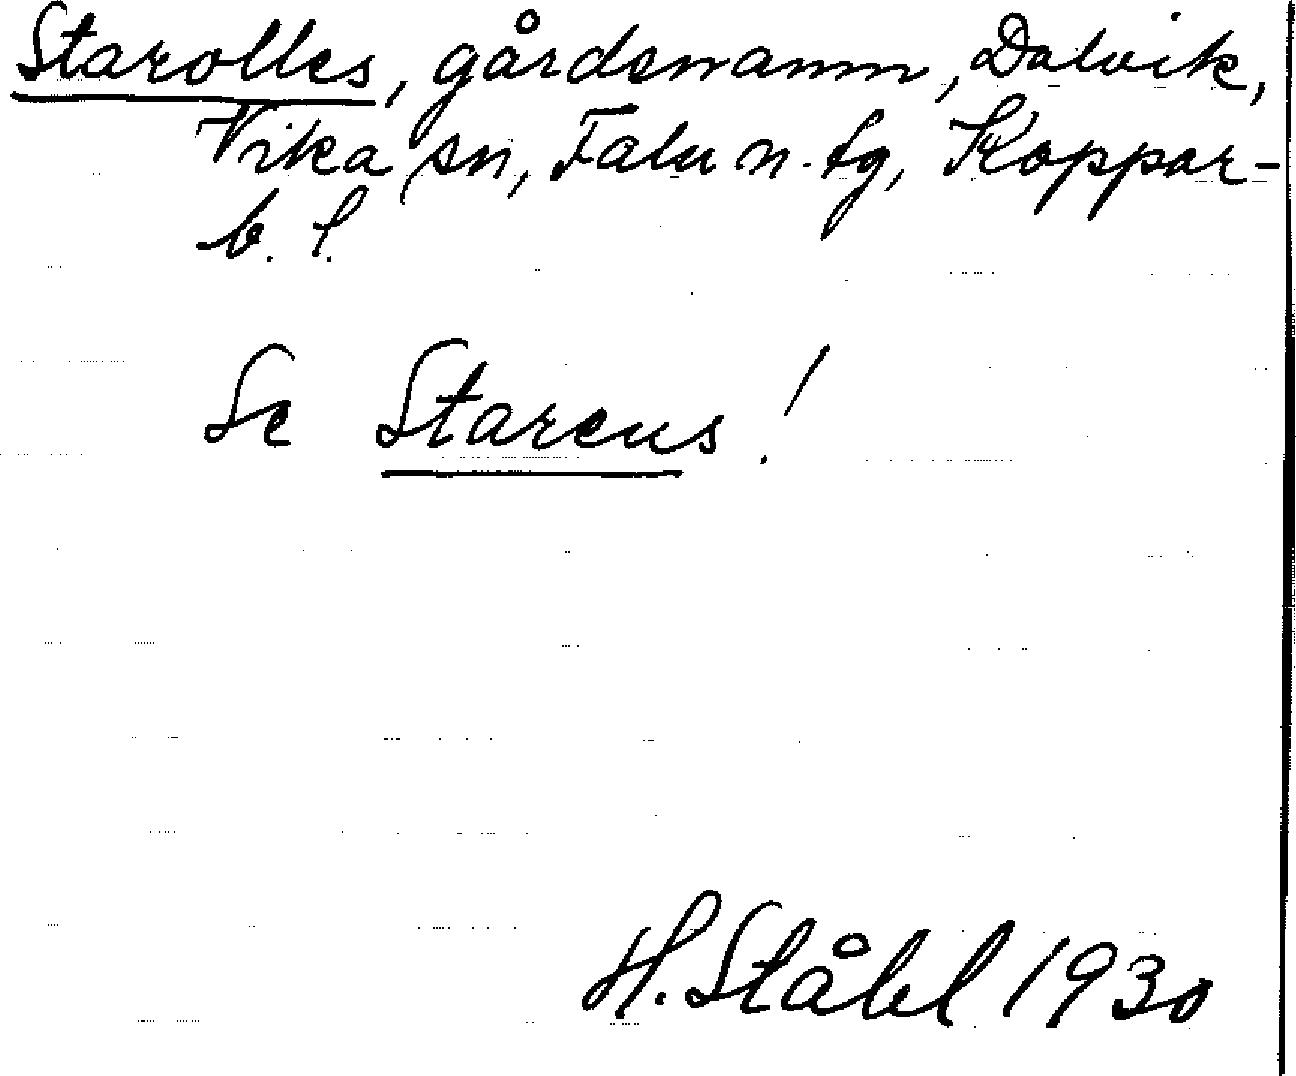 Starolles, gårdsnamn, Dalvik,
Vika sn, Falu n. tg, Koppar-
b. l.
Se Starens!
H. Ståhl 1930